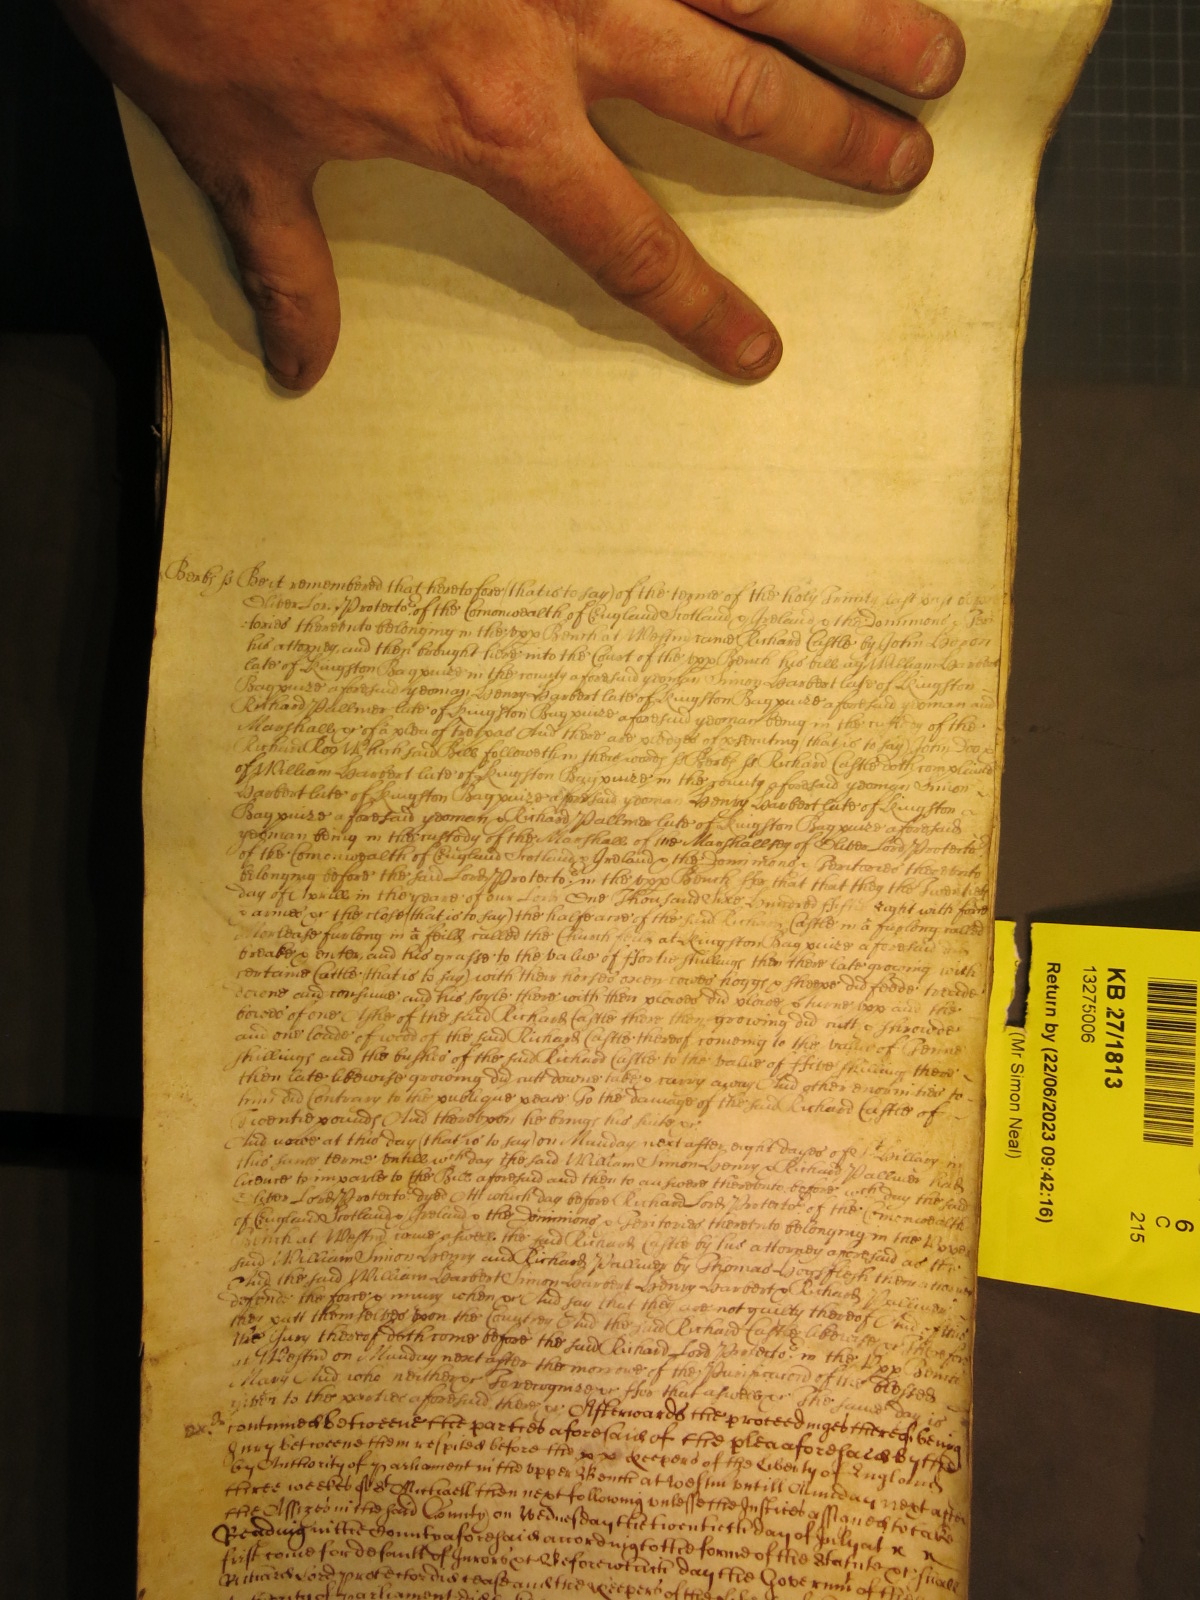 Berks ss Be it remembered that heretofore (that is to say) of the terme of the holy Trinity last past before
Oliver Lord Protector of the Comonwealth of England Scotland & Ireland & the Dominions & Terr
tories thereunto belonging in the upp Bench at Westm came Richard Castle by John
his attorney and then brought here into the Court of the upp Bench his bill ag William Harbert
late of Kingston Bagpuize in the county aforesaid yeoman Simon Harbert late of Kingston
Bagpuize aforesaid yeoman Henry Harbert late of Kingston Bagpuize aforesaid yeoman and
Richard Pallmer late of Kingston Bagpuize aforesaid yeoman being in the custody of the
Marshall &c of a plea of trespas And there are pledges of prosecuting that is to say John Doe &
Richard Roo Which said Bill followeth in these words ss Berks ss Richard Castle doth complaine
of William Harbert late of Kingston Bagpuize in the county aforesaid yeoman Simon
Harbert late of Kingston Bagpuize aforesaid yeoman Henry Harbert late of Kingston
Bagpuize aforesaid yeoman & Richard Pallmer late of Kingston Bagpuize aforesaid
yeoman being in the custody of the Marshall of the Marshallsey of Oliver Lord Protector
of the Comonwealth of England Scotland & Ireland & the Dominions & Territories thereunto
belonging before the said Lord Protector in the upp Bench ffor that that they the twentieth
day of Aprill in the yeare of our Lord One Thousand Sixe hundred fiftie eight with force
& armes &c the close (that is to say) the halfe acre of the said Richard Castle in a furlong called
furlong in a feild called the Church feild at Kingston Bagpuize aforesaid did
breake & enter and his grasse to the value of ffortie shillings then there late growing with
certaine Cattle that is to say) with their horses oxen cowes hoggs & sheepe did feede treade
downe and consume and his soyle there with their plowes did plowe & turne upp and the
bowes of one Ashe of the said Richard Castle there then growing did cutt & shroude
and one loade of wood of the said Richard Castle thereof comeing to the value of Tenne
shillings and the bushes of the said Richard Castle to the value of ffive shillings there
then late likewise growing did cutt downe take & carry away And other enormities to
him did Contrary to the publique peace To the damage of the said Richard Castle of
Twentie pounds And thereupon he brings his suite &c
And nowe at this day (that is to say) on Munday next after eight dayes of St Hillary in
this same terme untill wch day the said William Simon Henry & Richard Pallmer had
licence to imparle to the Bill aforesaid and then to answere thereunto before wch day the said
Oliver Lord Protector dyed Att which day before Richard Lord Protector of the Comonwealth
of England Scotland & Ireland & the dominions & Territories thereunto belonging in the Upper
Bench at Westm came aswell the said Richard Castle by his attorney aforesaid as the
said William Simon Henry and Richard Pallmer by Thomas Hoggflesh their attorney
And the said William Harbert Simon Harbert Henry Harbert & Richard Pallmer
defend the force & injury when &c And say that they are not guilty thereof And of this
they putt themselves upon the Countrey And the said Richard Castle likewise &c Therefore
the Jury thereof doth come before the said Richard Lord Protector in the Upp Bench
at Westm on Munday next after the morrowe of the Purification of the blessed
Mary And who neither &c To recognise &c ffor that aswell &c The same day is
given to the parties aforesaid there &c Afterwards the proceedinges thereof being
continued betweene the parties aforesaid of the plea aforesaid by the
Jury betweene them respited before the keepers of the Liberty of England
by Authority of parliament in the upper Bench at Westm untill Munday next after
three weekes of St Michaell then next following unlesse the Justices assigned to take
the Assizes in the said County on Wednesday the twentieth day of July at
Reading in the County aforesaid according to the forme of the Statute &c shall
first come for default of Jurors &c Before which day the Governmt of the
Richard Lord protector did cease and the keepers of the
Authority of parliament
KB 27/1813
13275006
Return by (22/06/2023 09:42:16)
(Mr Simon Neal)
6
C
215